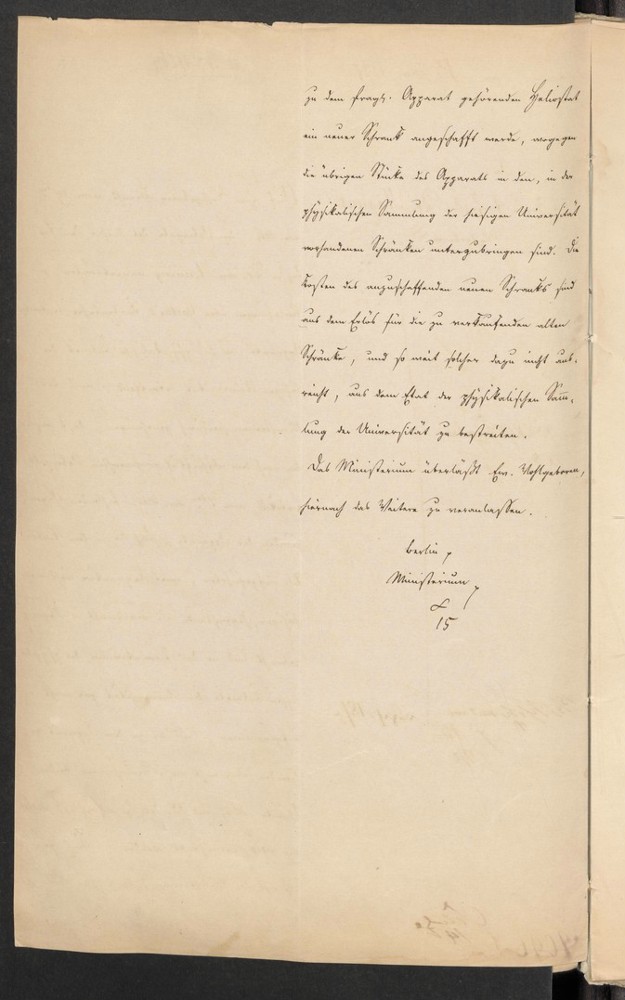 zu dem fragl. Apparat gehörenden Heliostat
ein neuer Schrank angeschafft werde, wogegen
die übrigen Stücke des Apparats in den, in der
physikalischen Sammlung der hiesigen Universität
vorhandenen Schränken unterzubringen sind. Die
Kosten des anzuschaffenden neuen Schranks sind
aus dem Erlös für die zu verkaufenden alten
Schränke, und so weit solcher dazu nicht aus-
reicht, aus dem Etat der physikalischen Sam̄-
lung der Universität zu bestreiten.
Das Ministerium überläßt Ew. Wohlgeboren,
hiernach das Weitere zu veranlassen.
Berlin
Ministerium
15